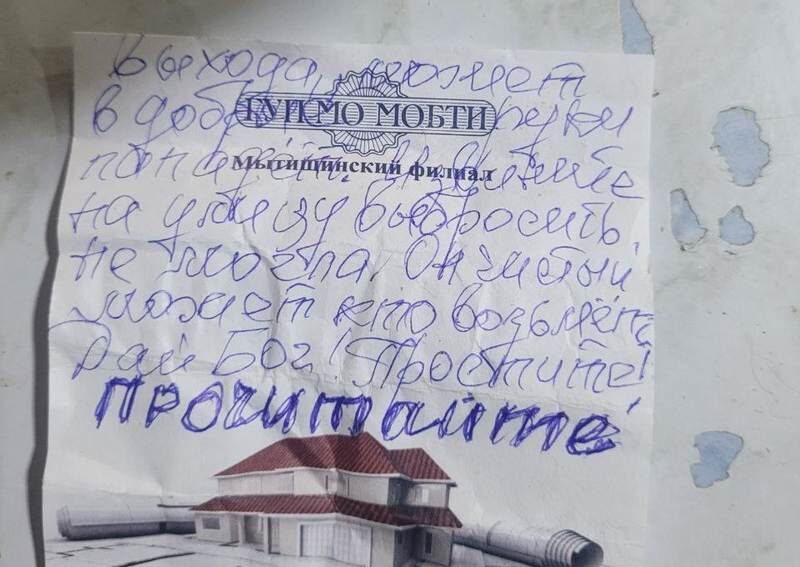 выхода, может
ГУП МО МОБТИ
в добрые руки
Мытищинский филиал
попадёт. Извините
на улицу выбросить
не могла. Он чистый
может кто возьмёт,
Дай Бог! Простите!
прочитайте!